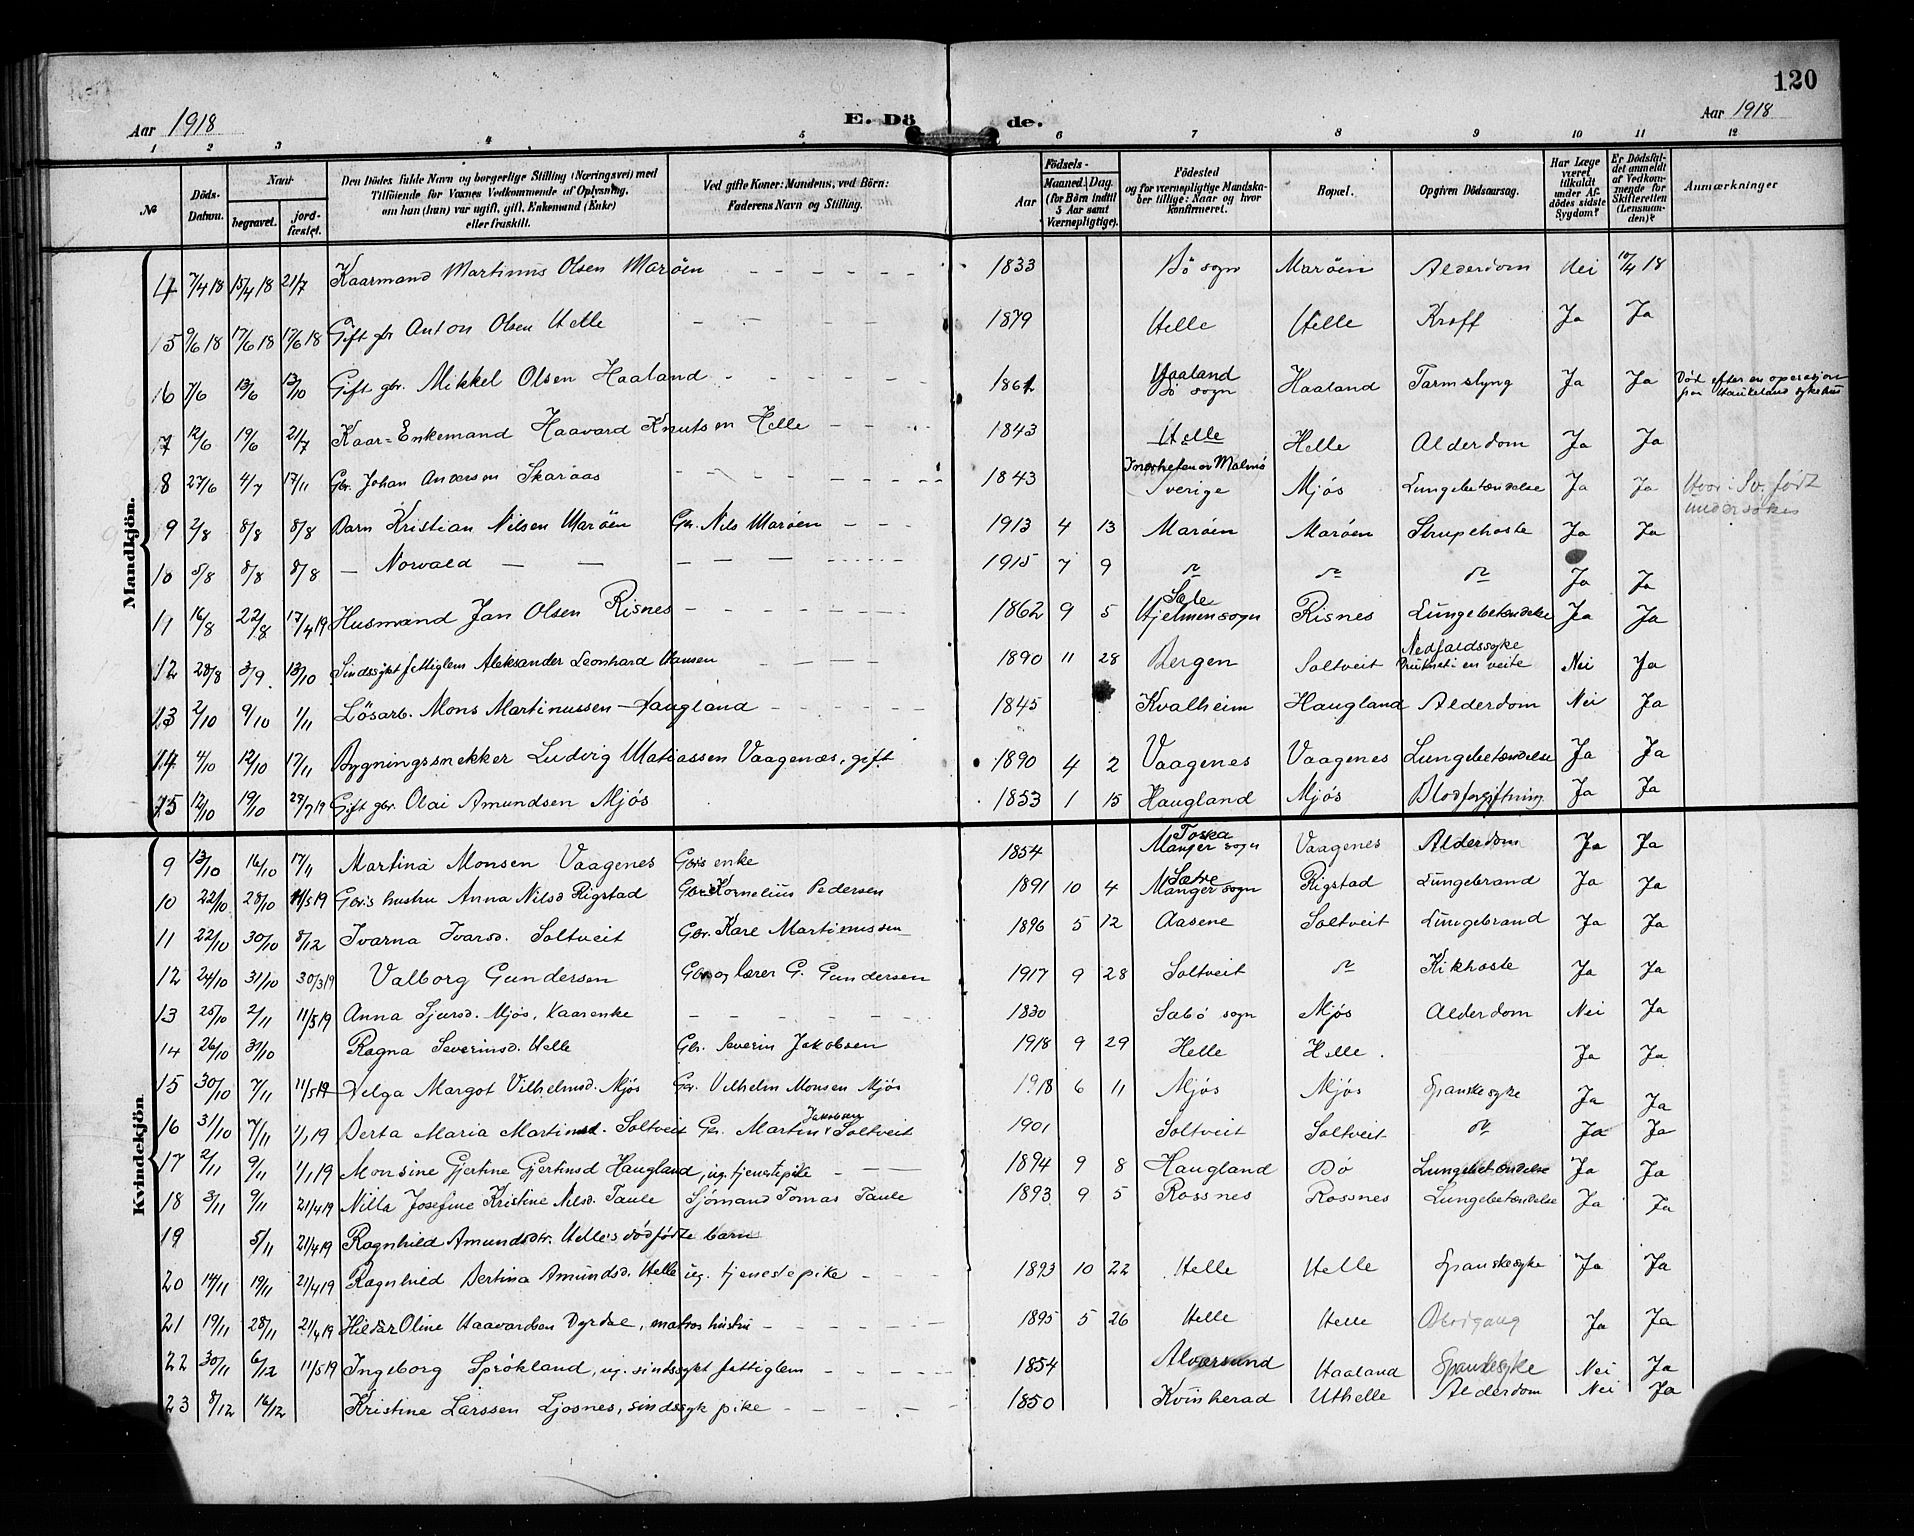 120
Aar 1918 E. Dö de. Aar 1918
1 2 3 4 5 6 7 8 9 10 11 12
№ Döds-Datum. Naar begravet. jordfæstet. Den Dödes fulde Navn og borgerlige Stilling (Næringsvei) med Tilföiende for Voxnes Vedkommende af Oplysning, om han (hun) var ugift, gift, Enkemand (Enke) eller fraskilt. Ved gifte Koner: Mandens, ved Börn: Faderens Navn og Stilling. Födsels- Aar Maaned. Dag. (for Börn indtil 5 Aar samt Værnepligtige). Födested og for værnepligtige Mandskaber tillige: Naar og hvor konfirmeret. Bopæl. Opgiven Dödsaarsag. Har Læge været tilkaldt under Afdödes sidste Sygdom? Er Dödsfaldet anmeldt af Vedkommende for Skifteretten (Lensmanden)? Anmærkninger
Mandkjön.
4 7/4 18 15/4 18 21/7 Kaarmand Martinus Olsen Maröen 1833 Bö sogn Maröen Alderdom Nei 10/4 18
5 9/6 18 17/6 18 17/6 18 Gift gbr Anton Olsen Helle 1879 Helle Helle Kræft Ja Ja
6 7/6 13/6 13/10 Gift gbr. Mikkel Olsen Haaland 1861 Haaland Bö sogn Haaland Tarmslyng Ja Ja Död efter en operasjon paa Haukeland sykehus
7 12/6 19/6 21/7 Kaar-Enkemand Haavard Knutsen Helle 1843 Helle Helle Alderdom Ja Ja
8 27/6 4/7 17/11 Gbr. Johan Andersen Skaraas 1843 I nærheten av Malmö Sverige Mjös Lungebetændelse Ja Ja Hvor i Sv. födt undersökes
9 2/8 8/8 8/8 Barn Kristian Nilsen Maröen Gbr. Nils Maröen 1913 4 13 Maröen Maröen Strupehoste Ja Ja
10 5/8 8/8 8/8 — Norvald — — — 1915 7 9 Ja Ja
11 16/8 22/8 17/4 19 Husmand Jan Olsen Risnes 1862 9 5 Sæle Hjelmensogn Risnes Lungebetændelse Ja Ja
12 28/8 3/9 13/10 Sindssykt fattiglem Aleksander Leonhard Hansen 1890 11 28 Bergen Soltveit Nedfaldssyke Druknet i en veite Nei Ja
13 2/10 9/10 1/11 Lösarb. Mons Martinussen Haugland 1845 Kvalheim Haugland Alderdom Nei Ja
14 4/10 12/10 17/11 Bygningssnekker Ludvig Matiassen Vaagenæs, gift 1890 4 2 Vaagenes Vaagenes Lungebetændelse Ja Ja
15 12/10 19/10 27/7 19 Gift gbr. Olai Amundsen Mjös 1853 1 15 Haugland Mjös Blodforgiftning Ja Ja
Kvindekjön.
9 13/10 16/10 17/11 Martina Monsen Vaagenes Gbrs enke 1854 Toska Manger sogn Vaagenes Alderdom Ja Ja
10 22/10 28/10 11/5 19 Gbrs hustru Anna Nilsd Rigstad Gbr Kornelius Pedersen 1891 10 4 Sætre Manger sogn Rigstad Lungebrand Ja Ja
11 22/10 30/10 8/12 Ivarna Ivarsd. Soltveit Gbr. Kare Martinussen 1896 5 12 Aasene Soltveit Lungebrand Ja Ja
12 24/10 31/10 30/3 19 Valborg Gundersen Gbr og lærer G. Gundersen 1917 9 28 Soltveit Kikhoste Ja Ja
13 25/10 2/11 11/5 19 Anna Sjursd. Mjös, Kaarenke 1830 Sæbö sogn Mjös Alderdom Nei Ja
14 26/10 31/10 Ragna Severinsd. Helle Gbr. Severin Jakobsen 1918 9 29 Helle Helle Ja Ja
15 30/10 7/11 11/5 19 Helga Margot Vilhelmsd. Mjös Gbr. Vilhelm Monsen Mjös 1918 6 11 Mjös Mjös Spanskesyke Ja Ja
16 31/10 7/11 1/1 19 Berta Maria Martinsd. Soltveit Gbr. Martin Jakobsen Soltveit 1901 Soltveit Soltveit Ja Ja
17 2/11 9/11 1/1 19 Monsine Gjertine Gjertinsd Haugland, ug. tjenestepike 1894 9 8 Haugland Bö Lungebetændelse Ja Ja
18 3/11 9/11 21/4 19 Nilla Josefine Kristine Nilsd. Taule Sjömand Tomas Taule 1893 9 5 Rossnes Rossnes Lungebetændelse Ja Ja
19 5/11 21/4 19 Ragnhild Amundsdtr. Helle's dödfödte barn
20 14/11 19/11 21/4 19 Ragnhild Bertina Amundsd. Helle ug. tjenestepike 1893 10 22 Helle Helle Spanskesyke Ja Ja
21 19/11 28/11 21/4 19 Hilda Oline Haavardsen Dyrdal, matros hustru 1895 5 26 Helle Helle Blodgang Ja Ja
22 30/11 6/12 11/5 19 Ingeborg Sprökland, ug. sindssykt fattiglem 1854 Alversund Haaland Spanskesyke Nei Ja
23 8/12 16/12 Kristine Larssen Ljosnes, sindssyk pike 1850 Kvinherad Uthelle Alderdom Nei Ja